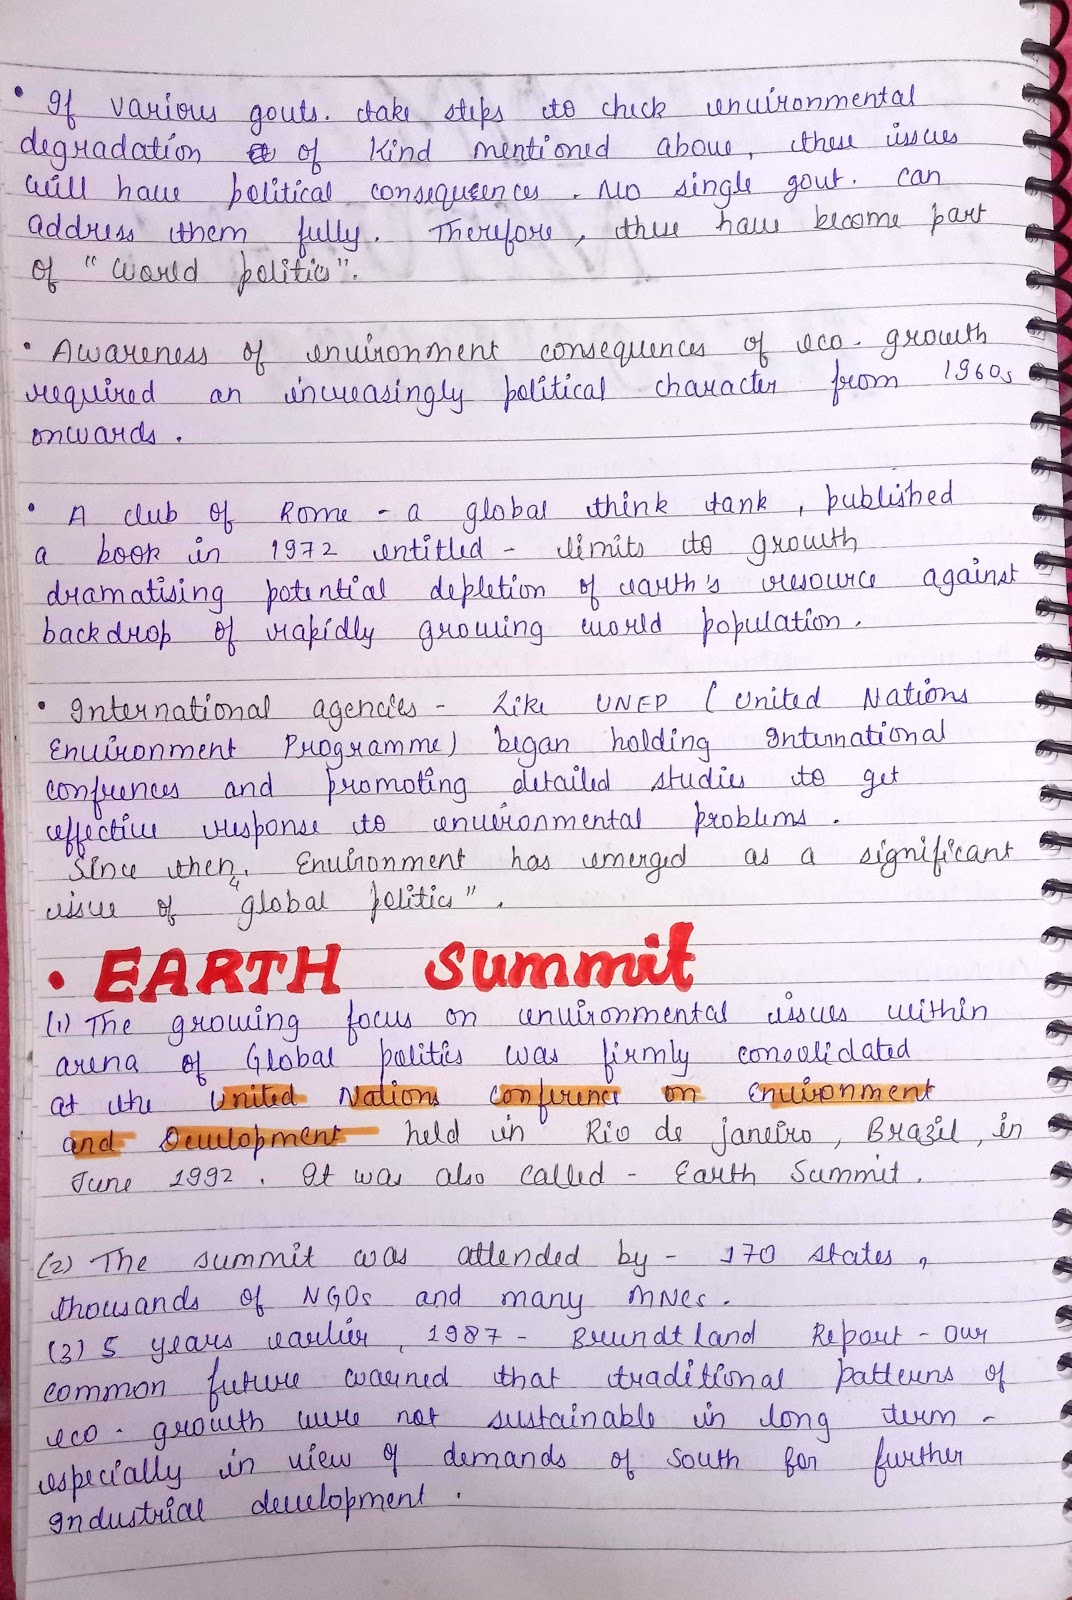 • If various govts. take steps to check environmental
degradation of kind mentioned above, these issues
will have political consequences. No single govt. can
address them fully. Therefore, these have become part
of "World politics".
• Awareness of environment consequences of eco. growth
required an increasingly political character from 1960s
onwards.
• A club of Rome - a global think tank, published
a book in 1972 entitled - limits to growth
dramatising potential depletion of earth's resource against
backdrop of rapidly growing world population.
• International agencies - Like UNEP (United Nations
Environment Programme) began holding International
confrences and promoting detailed studies to get
effective response to environmental problems.
Since then, Environment has emerged as a significant
issue of "global politics".
• EARTH Summit
(1) The growing focus on environmental issues within
arena of Global politics was firmly consolidated
at the United Nations Conference on Environment
and Development held in Rio de janeiro, Brazil, in
June 1992. It was also called - Earth Summit.
(2) The summit was attended by - 170 states,
thousands of NGOs and many MNCs.
(3) 5 years earlier, 1987 - Brundtland Report - our
common future warned that traditional patterns of
eco. growth were not sustainable in long term -
especially in view of demands of south for further
Industrial development.